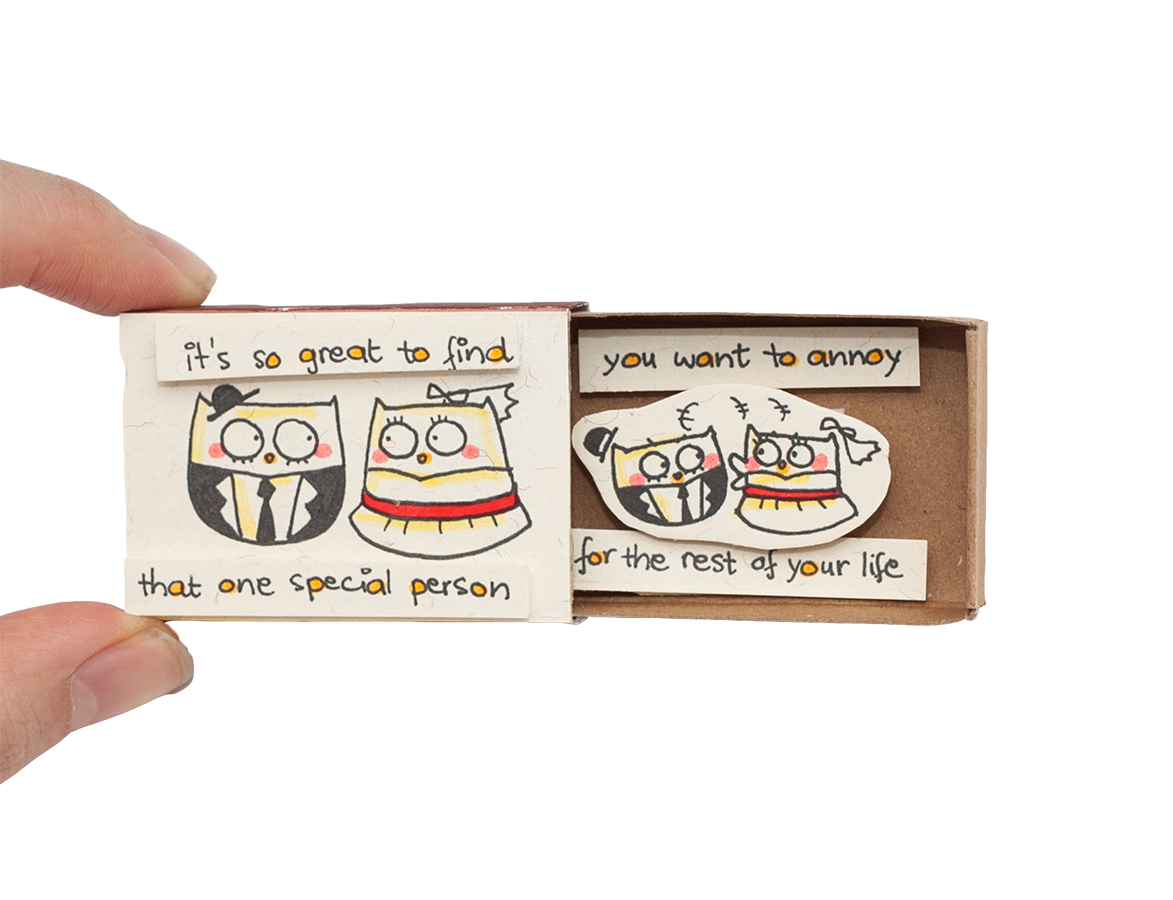 it's so great to find
that one special person
you want to annoy
for the rest of your life